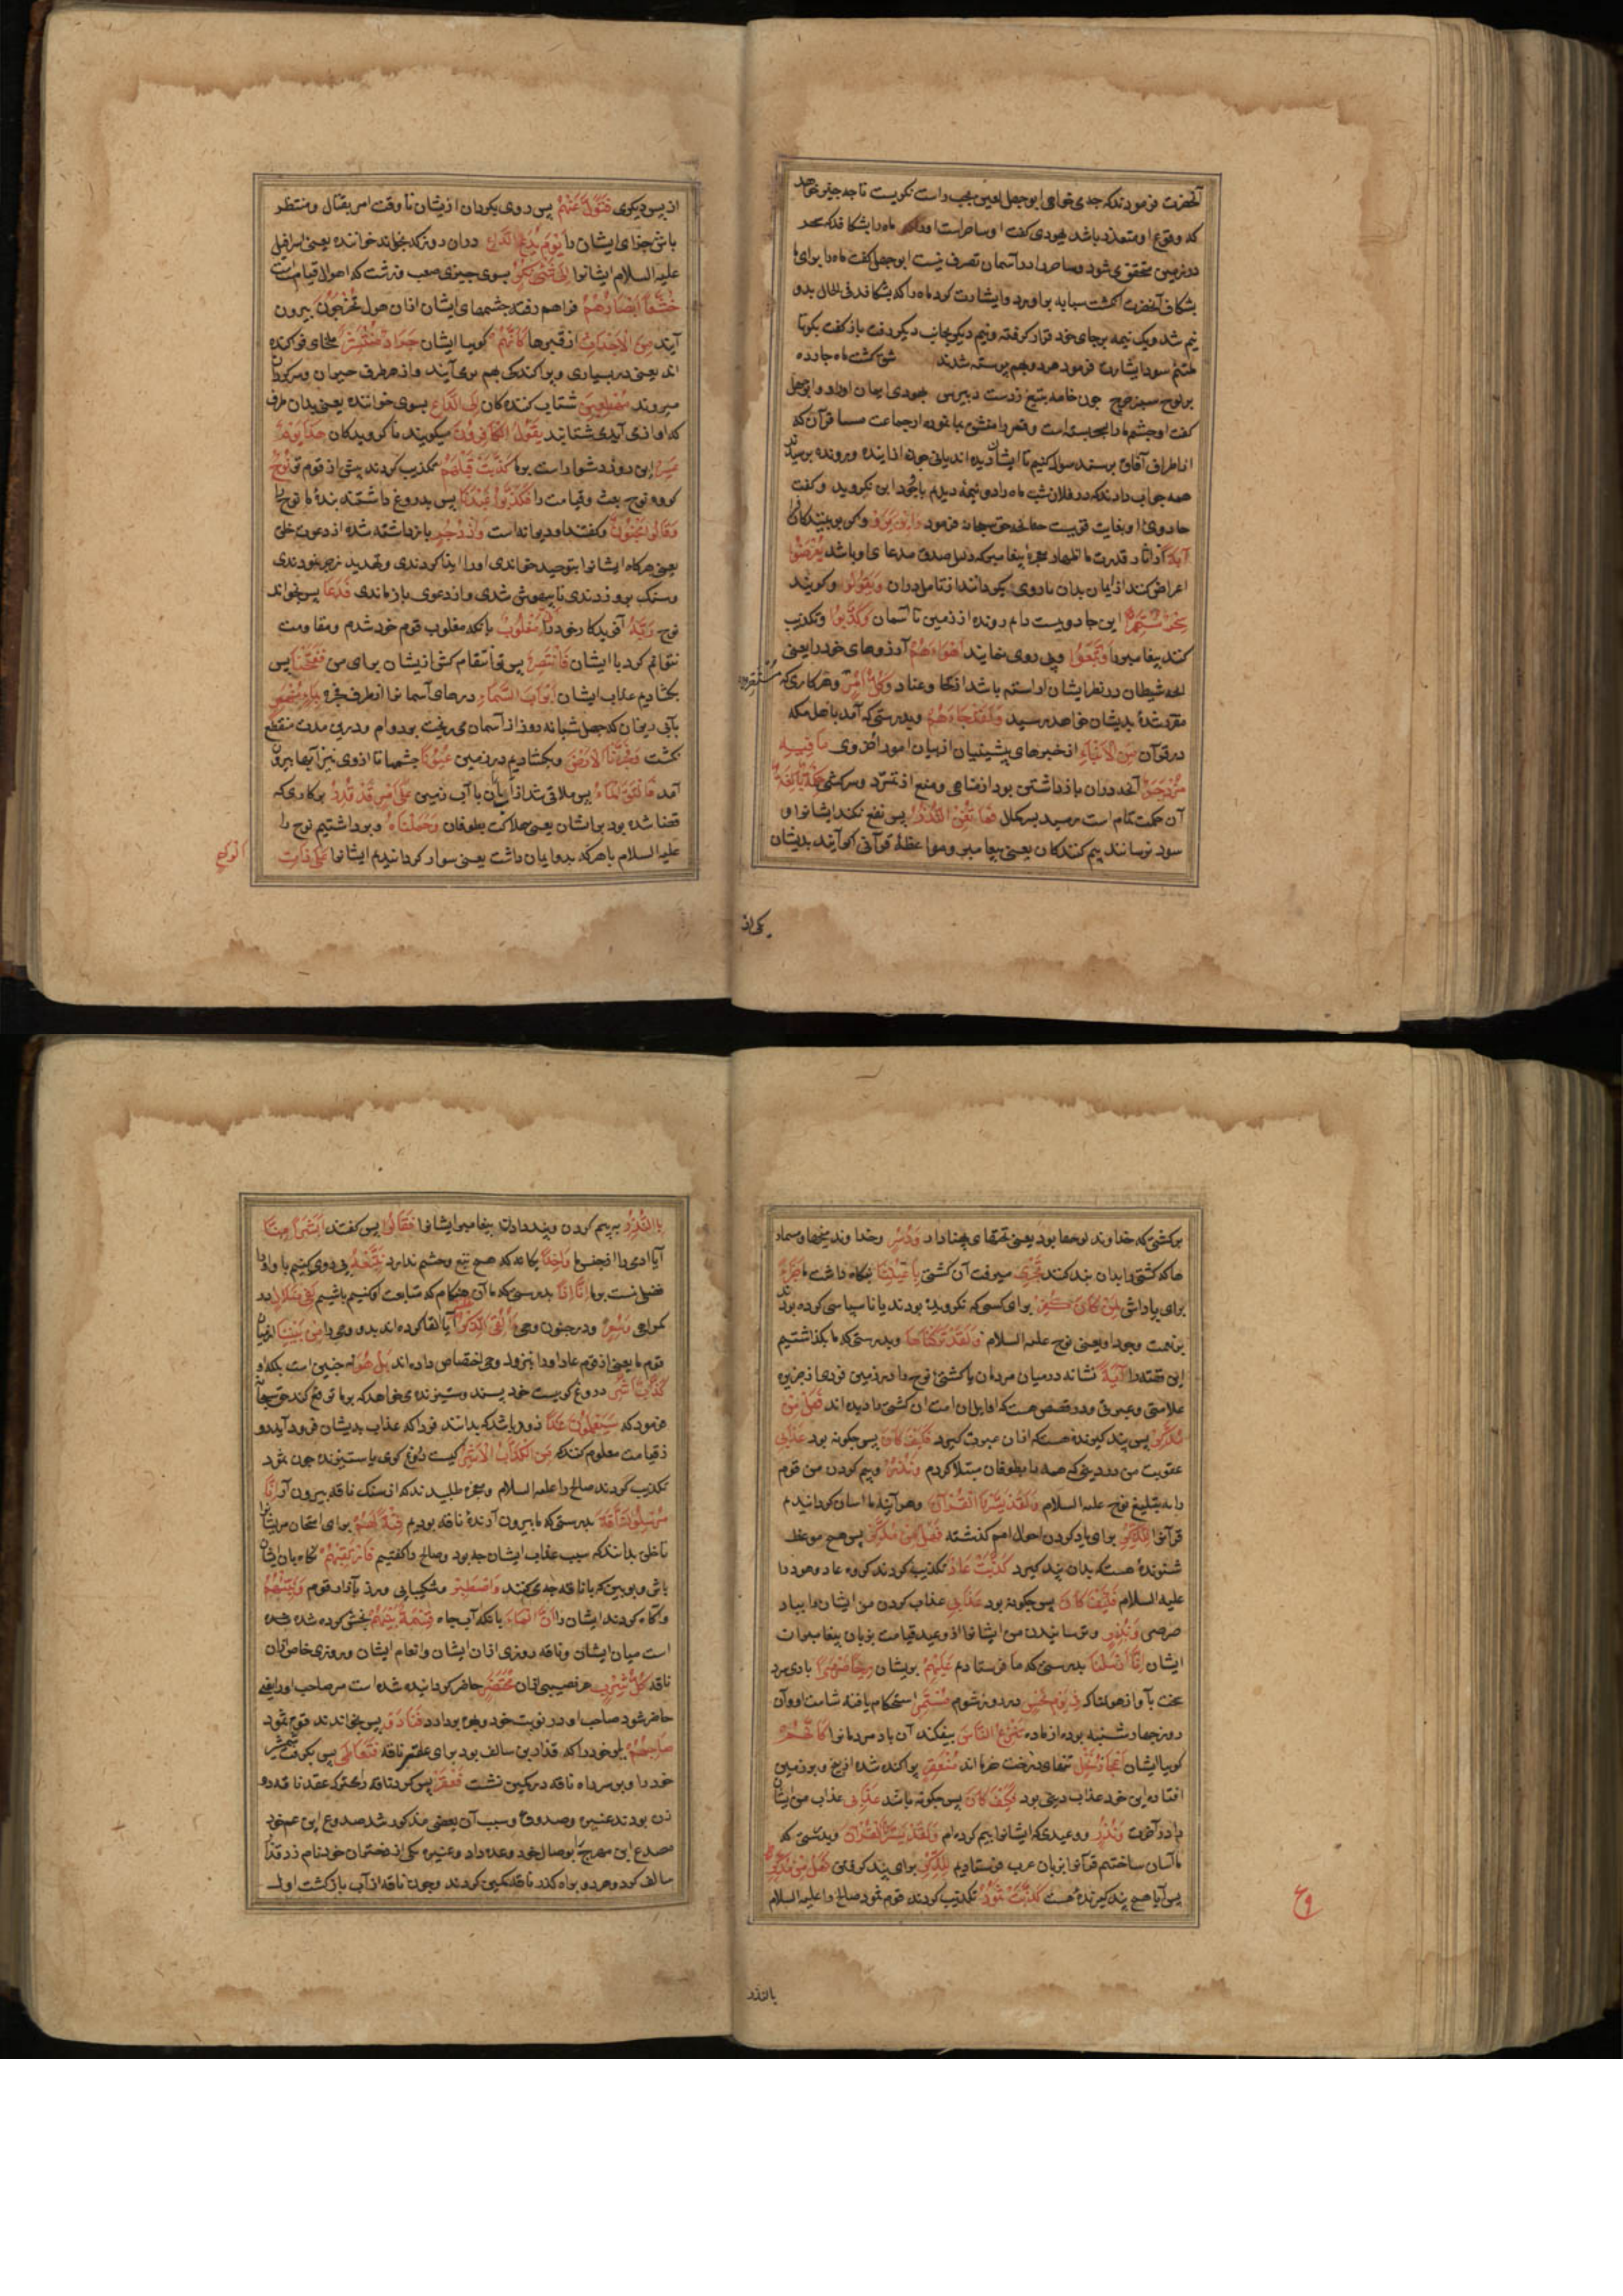 آنحضرت فرمودند که چه می خواهی ابوجهل لعین بچپ و راست نگریست تا چه چیز خواهد
که وقوع او متعذر باشد یهودی گفت او ساحر است او را ماه را بشکافد که سحر
در زمین متحقق می شود و ساحر را در آسمان تصرف نیست ابوجهل گفت ماه را برای ما
بشکاف آنحضرت انگشت سبابه برآورد و اشارت کرد ماه را که بشکافد فی الحال بدو
نیم شد و یک نیمه برجای خود قرار گرفته و نیم دیگر بجانب دیگر رفت باز گفت بگو تا
ملتئم شود اشارت فرمود هر دو بهم پیوسته شدند شق گشت ماه چارده
بر لوح سبز چرخ چون خامه بتیغ زدست دبیرس یهودی ایمان آورد و ابوجهل
گفت او چشم ما را بسحر بسته است و قمر را منشق بما نموده از جماعت مسافران که
از اطراف آفاق برسند سوال کنیم تا ایشان دیده اند یانی چون از آینده و رونده پرسیدند
همه جواب دادند که در فلان شب ماه را دو نیمه دیدیم با وجود این نگروید و گفت
جادوی او بغایت قویست حقتعالی سبحانه فرمود وَاِنْ يَرَوْا و اگر ببینند کافران
آيَةً از آثار قدرت ما اظهار معجزهٔ پیغامبر که دلیل صدق مدعای او باشد يُعْرِضُوا
اعراض کنند از ایمان بدان یا روی بگردانند از تأمل در آن وَيَقُولُوا و گویند
سِحْرٌ مُسْتَمِرٌّ این جادویست دایم رونده از زمین تا آسمان وَكَذَّبُوا و تکذیب
کنند پیغامبر را وَاتَّبَعُوا و پی روی نمایند اَهْوَاءَهُمْ آرزوهای خود را یعنی
آنچه شیطان در نظر ایشان آراسته باشد از و عناد وَكُلُّ اَمْرٍ و هر کاری که مُسْتَقِرٌّ
مقرر شدهٔ بدیشان خواهد رسید وَلَقَدْ جَاءَهُمْ و بدرستی که آمد باهل مکه
در قرآن مِنَ الْاَنْبَاءِ از خبرهای پیشینیان از بیان امور اخروی مَا فِيهِ
مُزْدَجَرٌ آنچه در آن باز داشتن بود از مناهی و منع از تمرد و سرکشی حِكْمَةٌ بَالِغَةٌ
آن حکمت تمام است رسید بسر کمال فَمَا تُغْنِ النُّذُرُ پس نفع نکند ایشانرا و
سود نرسانند بیم کنندگان یعنی پیغامبر و مواعظ قرآنی که آیند بدیشان
یکی از
از پس دیگری فَتَوَلَّ عَنْهُمْ پس روی بگردان ازیشان تا وقت امر بقتال و منتظر
باش جزای ایشان را يَوْمَ يَدْعُ الدَّاعِ در آن روز که بخواند خواننده یعنی اسرافیل
علیه السلام ایشانرا اِلٰى شَيْءٍ نُكُرٍ بسوی چیزی صعب و زشت که اهوال قیامت است
خُشَّعًا اَبْصَارُهُمْ فراهم رفته چشمهای ایشان از آن هول يَخْرُجُونَ بیرون
آیند مِنَ الْاَجْدَاثِ از قبرها كَاَنَّهُمْ گویا ایشان جَرَادٌ مُنْتَشِرٌ ملخهای پراکنده
اند یعنی در بسیاری و پراکندگی بهم برمی آیند و از هر طرف حیران و سرگردان
میروند مُهْطِعِينَ شتاب کنندگان اِلَى الدَّاعِ بسوی خواننده یعنی بدان طرف
که آواز می آید می شتابند يَقُولُ الْكَافِرُونَ میگویند ناگرویدگان هٰذَا يَوْمٌ
عَسِرٌ این روز دشوار است بر ما كَذَّبَتْ قَبْلَهُمْ تکذیب کردند پیش از قوم تو قَوْمُ نُوحٍ
گروه نوح بعث و قیامت را فَكَذَّبُوا عَبْدَنَا پس بدروغ داشتند بندهٔ ما نوح را
وَقَالُوا مَجْنُونٌ و گفتند او دیوانه است وَازْدُجِرَ و باز داشته شده از دعوت خلق
یعنی هرگاه ایشانرا بتوحید خواندی او را ایذا کردندی و بتهدید زجر نمودندی
و سنگ برو زدندی تا بیهوش شدی و از دعوی باز ماندی فَدَعَا پس بخواند
نوح رَبَّهُ آفریدگار خود را اَنِّي مَغْلُوبٌ بآنکه مغلوب قوم خود شدم و مقاومت
نتوانم کرد با ایشان فَانْتَصِرْ پس تو انتقام کش ازیشان برای من فَفَتَحْنَا پس
بگشادیم عذاب ایشان اَبْوَابَ السَّمَاءِ درهای آسمانرا از طرف مجره بِمَاءٍ مُنْهَمِرٍ
بآبی ریزان که چهل شبانه روز از آسمان می ریخت بر دوام و درین مدت منقطع
نگشت وَفَجَّرْنَا الْاَرْضَ و بگشادیم در زمین عُيُونًا چشمها تا از وی نیز آبها بیرون
آمد فَالْتَقَى الْمَاءُ پس ملاقی شد آب آسمان با آب زمین عَلٰى اَمْرٍ قَدْ قُدِرَ بر کاری که
قضا شده بود بر ایشان یعنی هلاکت بطوفان وَحَمَلْنَاهُ و برداشتیم نوح را
علیه السلام با هر که بدو ایمان داشت یعنی سوار گردانیدیم ایشانرا عَلٰى ذَاتِ
اَلْوَاحٍ
بر کشتی که خداوند لوحها بود یعنی تختهای پهناداد وَدُسُرٍ و خداوند میخها و مسمار
ها که کشتی را بدان بند کنند تَجْرِي میرفت آن کشتی بِاَعْيُنِنَا بنگاه داشت ما جَزَاءً
برای پاداش لِمَنْ كَانَ كُفِرَ برای کسی که نگرویده بودند یا ناسپاسی کرده بودند
بر نعمت وجود او یعنی نوح علیه السلام وَلَقَدْ تَرَكْنَاهَا و بدرستی که ما بگذاشتیم
این قصه را آيَةً نشانه در میان مردمان یا کشتی نوح را در زمین قردی از جزیره
علامتی و عبرتی و در قصص هست که اوایل این امت آن کشتی را دیده اند فَهَلْ مِنْ
مُدَّكِرٍ پس پند گیرنده هست که از آن عبرت گیرد فَكَيْفَ كَانَ پس چگونه بود عَذَابِي
عقوبت من در دینی که همه را بطوفان مبتلا کردم وَنُذُرِ و بیم کردن من قوم
را به تبلیغ نوح علیه السلام وَلَقَدْ يَسَّرْنَا الْقُرْآنَ و هر آینه ما آسان گردانیدیم
قرآنرا لِلذِّكْرِ برای یاد کردن احوال امم گذشته فَهَلْ مِنْ مُدَّكِرٍ پس هیچ موعظه
شنونده هست که بدان پند گیرد كَذَّبَتْ عَادٌ تکذیب کردند گروه عاد و هود را
علیه السلام فَكَيْفَ كَانَ پس چگونه بود عَذَابِي عذاب کردن من ایشان را بباد
صرصر وَنُذُرِ و ترسانیدن من ایشانرا از وعید قیامت بزبان پیغامبران
ایشان اِنَّا اَرْسَلْنَا بدرستی که ما فرستادیم عَلَيْهِمْ بریشان رِيحًا صَرْصَرًا بادی سرد
سخت با آواز هولناک فِي يَوْمِ نَحْسٍ در روز شوم مُسْتَمِرٍّ استحکام یافته شامت او و آن
روز چهارشنبه بوده از ماه تَنْزِعُ النَّاسَ بیفکند آن باد مردمانرا كَاَنَّهُمْ
گویا ایشان اَعْجَازُ نَخْلٍ تنهای درخت خرما اند مُنْقَعِرٍ پراکنده شده از بیخ و بر زمین
افتاده این خود عذاب دینی بود فَكَيْفَ كَانَ پس چگونه باشد عَذَابِي عذاب من ایشان
را در آخرت وَنُذُرِ و وعیدی که ایشانرا بیم کرده ام وَلَقَدْ يَسَّرْنَا الْقُرْآنَ و بدرستی که
ما آسان ساختیم قرآنرا بزبان عرب فرستادیم لِلذِّكْرِ برای پند گرفتن فَهَلْ مِنْ مُدَّكِرٍ
پس آیا هیچ پند گیرنده هست كَذَّبَتْ ثَمُودُ تکذیب کردند قوم ثمود صالح را علیه السلام
بالنذر
بِالنُّذُرِ به بیم کردن و پند دادن پیغامبر ایشانرا فَقَالُوا پس گفتند اَبَشَرًا مِنَّا
آیا آدمی را از جنس ما وَاحِدًا یگانه که هیچ تبع و حشم ندارد نَتَّبِعُهُ پی روی کنیم با و او را
فضل نیست بر ما اِنَّا اِذًا بدرستی که ما آن هنگام که متابعت او کنیم باشیم لَفِي ضَلَالٍ در
گمراهی وَسُعُرٍ و در جنون وحی ءَاُلْقِيَ الذِّكْرُ آیا القا کرده اند بدو وحی را مِنْ بَيْنِنَا از میان
قوم ما یعنی از قوم عاد او را بنزول وحی اختصاص داده اند بَلْ هُوَ نه چنین است بلکه او
كَذَّابٌ اَشِرٌ دروغ گویست خود پسند و ستیزنده می خواهد که بر ما ترفع کند حق سبحانه
فرمود که سَيَعْلَمُونَ غَدًا زود باشد که بدانند فردا که عذاب بدیشان فرود آید در
روز قیامت معلوم کنند که مَنِ الْكَذَّابُ الْاَشِرُ کیست دروغ گوی یا ستیزنده چون ثمود
تکذیب کردند صالح را علیه السلام و معجزه طلبیدند که از سنگ ناقه بیرون آرد اِنَّا
مُرْسِلُو النَّاقَةِ بدرستی که ما بیرون آرندهٔ ناقه بودیم فِتْنَةً لَهُمْ برای امتحان مر ایشانرا
تا خلق بدانند که سبب عذاب ایشان چه بود و صالح را گفتیم فَارْتَقِبْهُمْ نگاه بان ایشان
باش و ببین که با ناقه چه می کنند وَاصْطَبِرْ و شکیبایی ورز بآزار قوم وَنَبِّئْهُمْ
و آگاه گردان ایشان را اَنَّ الْمَاءَ بآنکه آب چاه قِسْمَةٌ بَيْنَهُمْ بخش کرده شده
است میان ایشان و ناقه روزی از آن ایشان و انعام ایشان و روزی خاص از آن
ناقه كُلُّ شِرْبٍ هر نصیبی از آن مُحْتَضَرٌ حاضر گردانیده شده است مر صاحب او را یعنی
حاضر شود صاحب او در نوبت خود و بهره بردارد فَنَادَوْا پس بخواندند قوم ثمود
صَاحِبَهُمْ یار خود را که قدار بن سالف بود برای عقر ناقه فَتَعَاطٰى پس بگرفت شمشیر
خود را و بر سر راه ناقه در کمین نشست فَعَقَرَ پس پی کرد ناقه را محرک عقد ناقه دو
زن بودند عنیزه و صدوق و سبب آن بعضی مذکور شد صدوق ابن عم خود
مصدع ابن مهرج را بوصال خود وعده داد و عنیزه یکی از دختران خود نامزد قدار
سالف کرد و هر دو براه گذر ناقه کمین کردند و چون ناقه از آب باز گشت اول